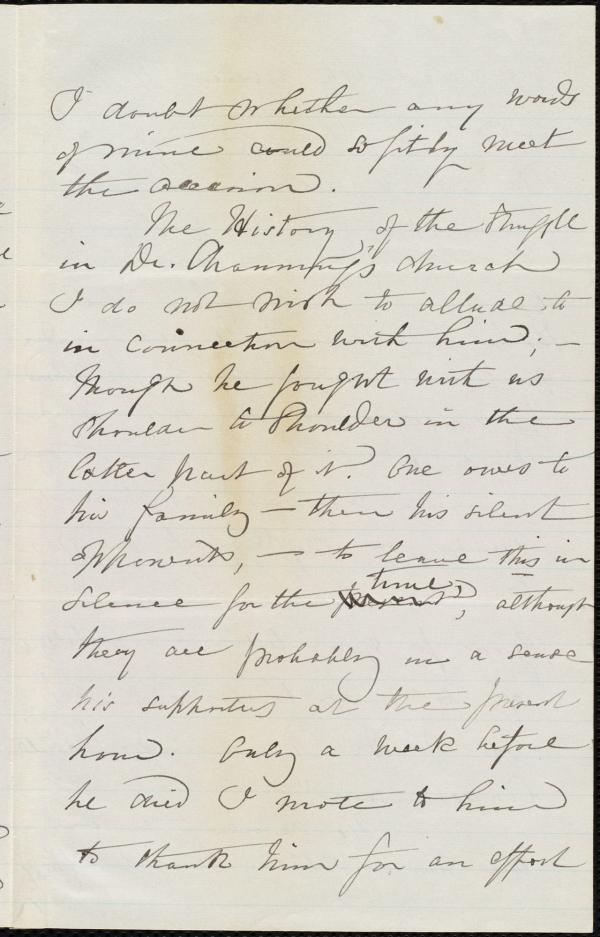 I doubt whether any words
of mine could so fitly meet
the occasion.
The History of the Struggle
in Dr. Channing's church
I do not wish to allude to
in connection with him; —
though he fought with us
shoulder to shoulder in the
latter part of it. One owes to
his family — then his silent
opponents, — to leave this in
silence for the time, although
they are probably in a sense
his supporters at the present
hour. Only a week before
he died I wrote to him
to thank him for an effort